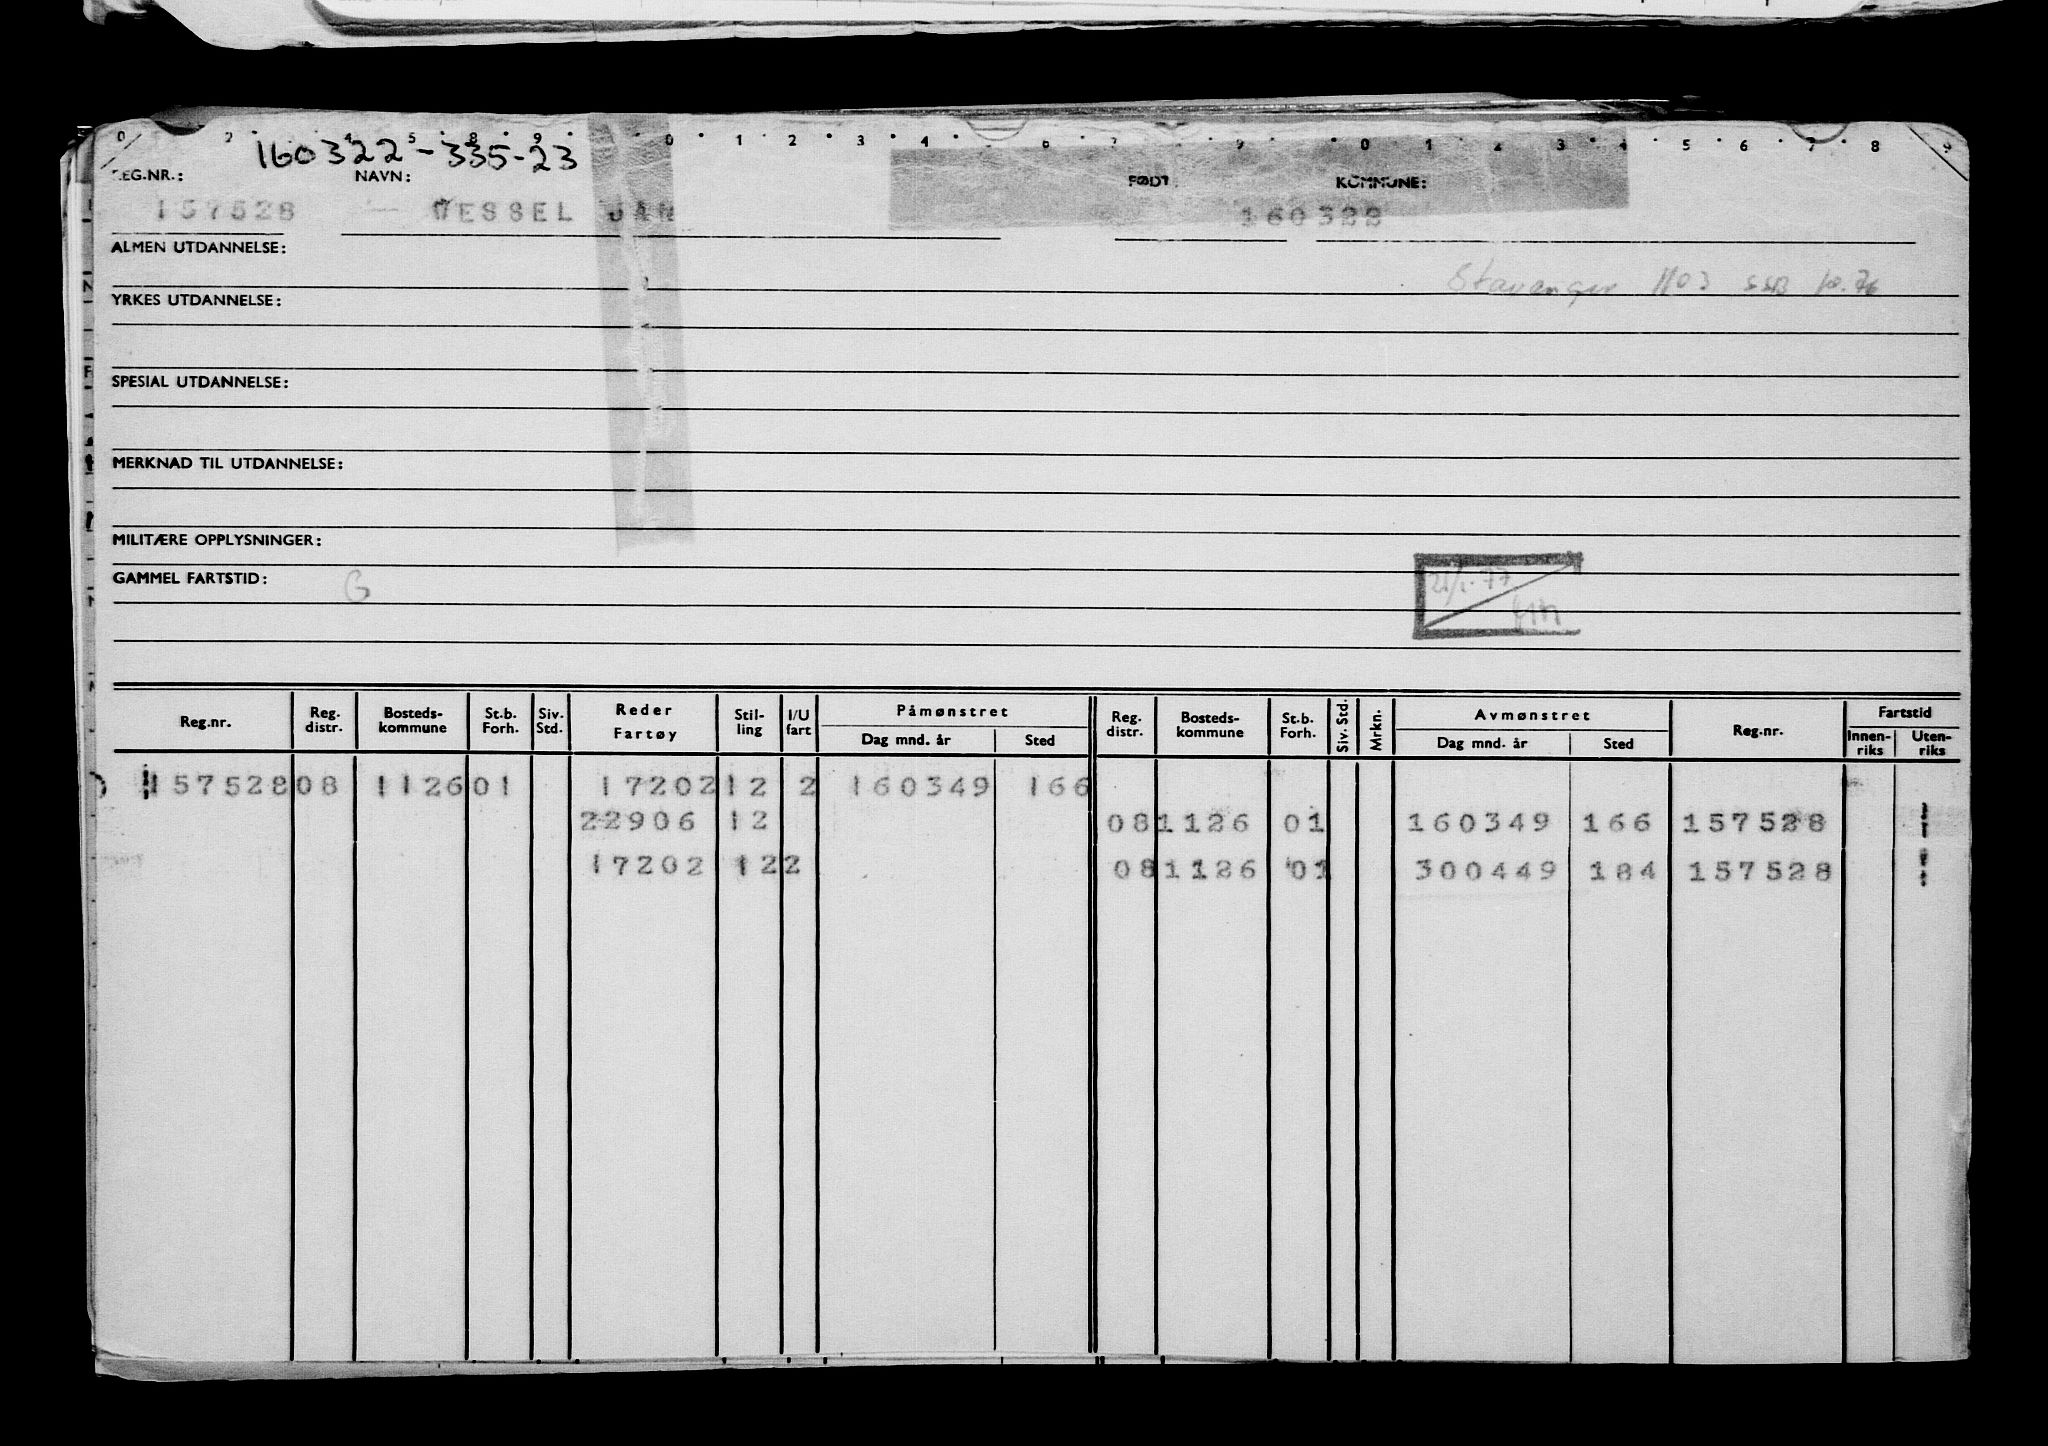 160322-335-23
REG.NR.: NAVN: FØDT: KOMMUNE:
157528 WESSEL JAN 160322
ALMEN UTDANNELSE:
Stavanger 1103 SSB 10.76
YRKES UTDANNELSE:
SPESIAL UTDANNELSE:
MERKNAD TIL UTDANNELSE:
MILITÆRE OPPLYSNINGER:
GAMMEL FARTSTID: G
21/1-77
Reg.nr. Reg. distr. Bosteds-kommune St.b. Forh. Siv. Std. Reder Fartøy Stil-ling I/U fart Påmønstret Dag mnd. år Sted Reg. distr. Bosteds-kommune St.b. Forh. Siv. Std. Mrkn. Avmønstret Dag mnd. år Sted Reg.nr. Fartstid Innen-riks Uten-riks
157528 08 1126 01 17202 12 2 160349 166
22906 12 08 1126 01 160349 166 157528
17202 12 2 08 1126 01 300449 184 157528